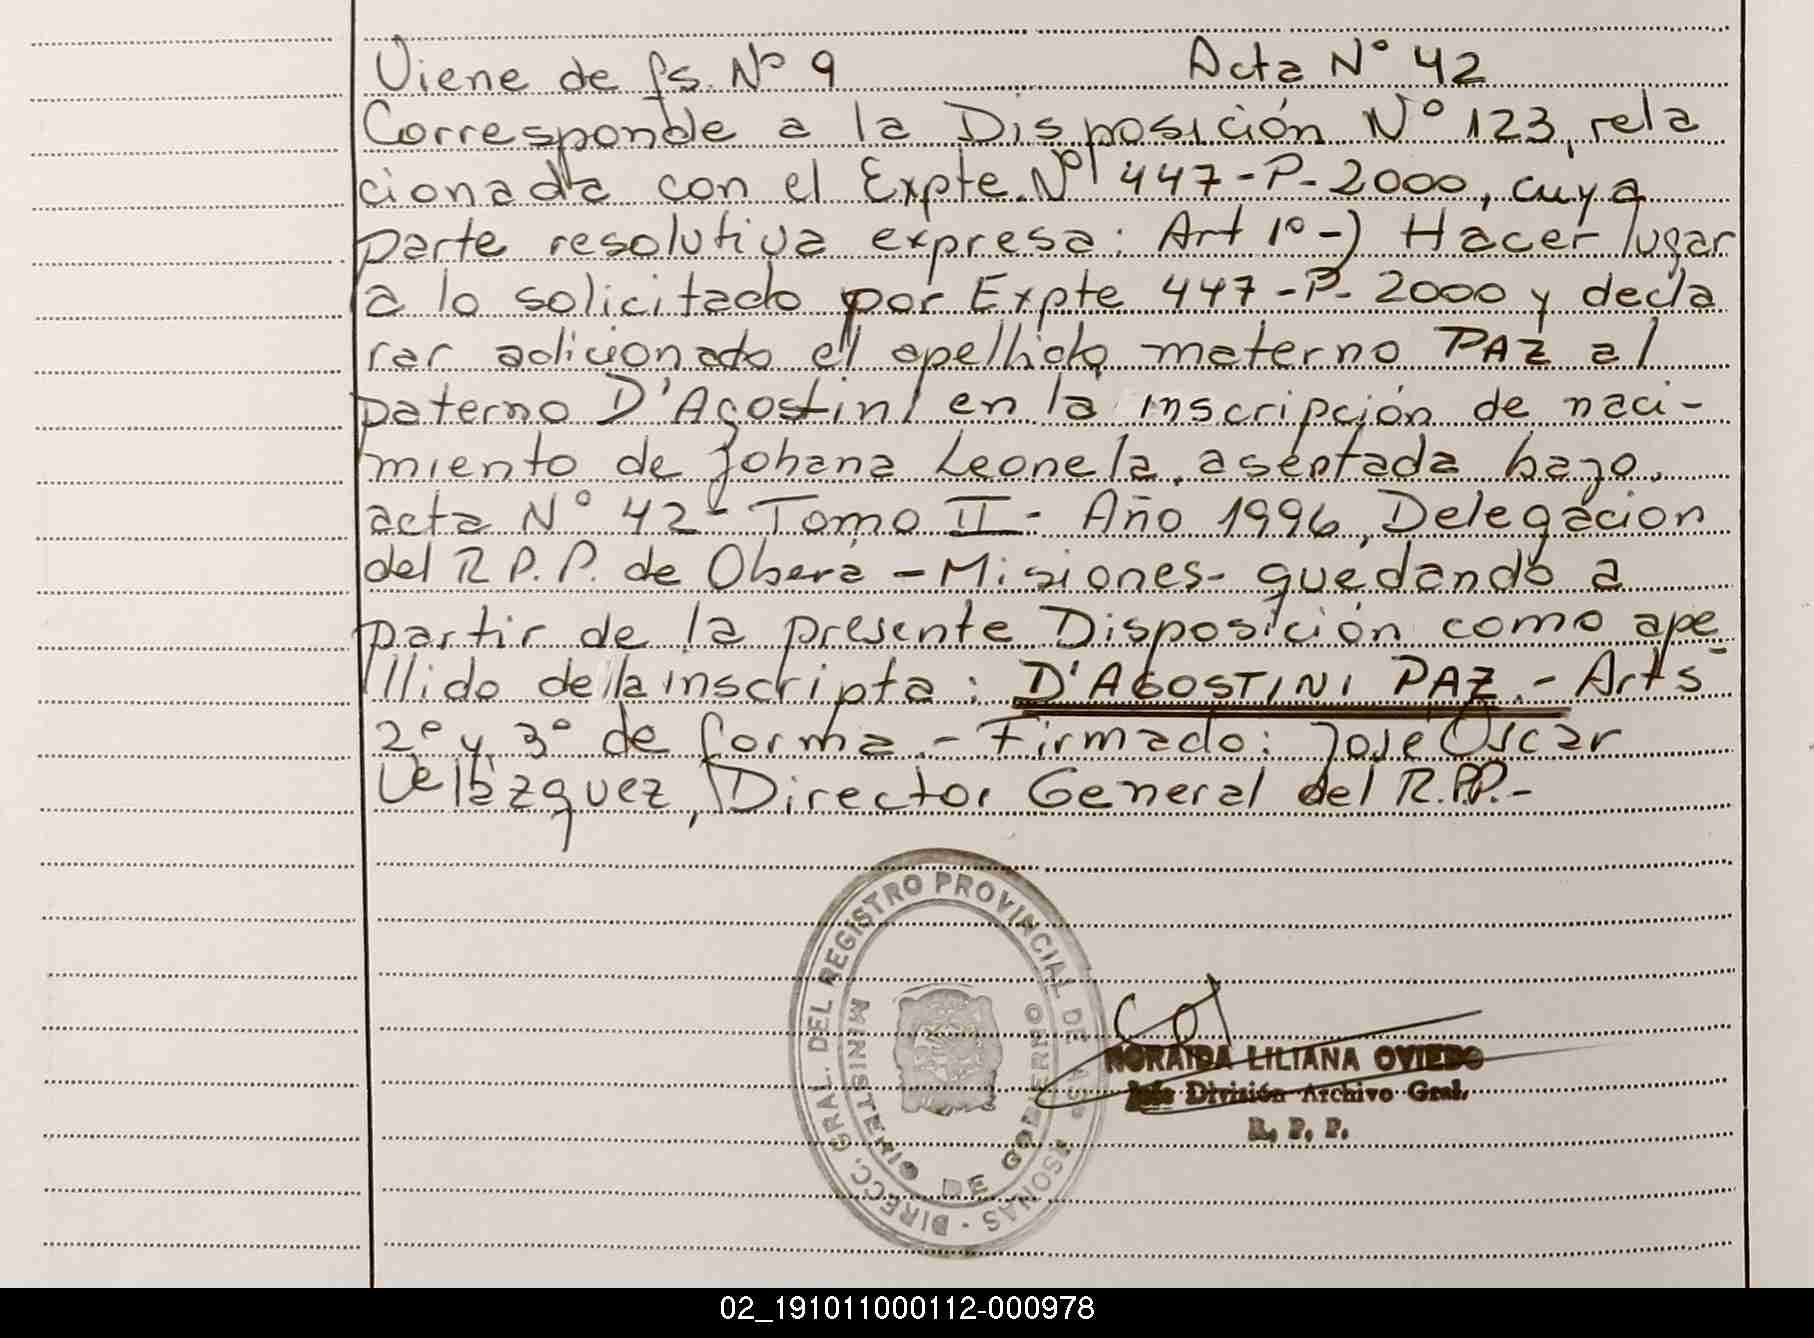 Viene de fs. Nº 9 Acta Nº 42
Corresponde a la Disposición Nº 123, rela
cionada con el Expte. Nº 447-P-2000, cuya
parte resolutiva expresa: Art 1º-) Hacer lugar
a lo solicitado por Expte 447-P-2000 y decla
rar adicionado el apellido materno PAZ al
paterno D'Agostini en la inscripción de naci-
miento de Johana Leonela, asentada bajo
acta Nº 42- Tomo II- Año 1996, Delegación
del R P.P. de Oberá -Misiones- quedando a
partir de la presente Disposición como ape
llido de la inscripta: D'AGOSTINI PAZ.- Arts
2º y 3º de forma.- Firmado: José Oscar
Velázquez, Director General del R.P.P.-
DIRECC. GRAL. DEL REGISTRO PROVINCIAL DE LAS PERSONAS -
MINISTERIO DE GOBIERNO
NORAIDA LILIANA OVIEDO
Jefe División Archivo Gral.
R. P. P.
02_191011000112-000978